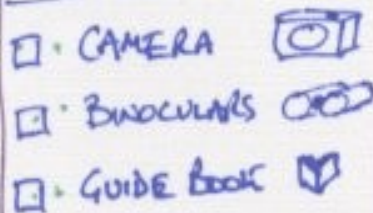 CAMERA
BINOCULARS
GUIDE BOOK